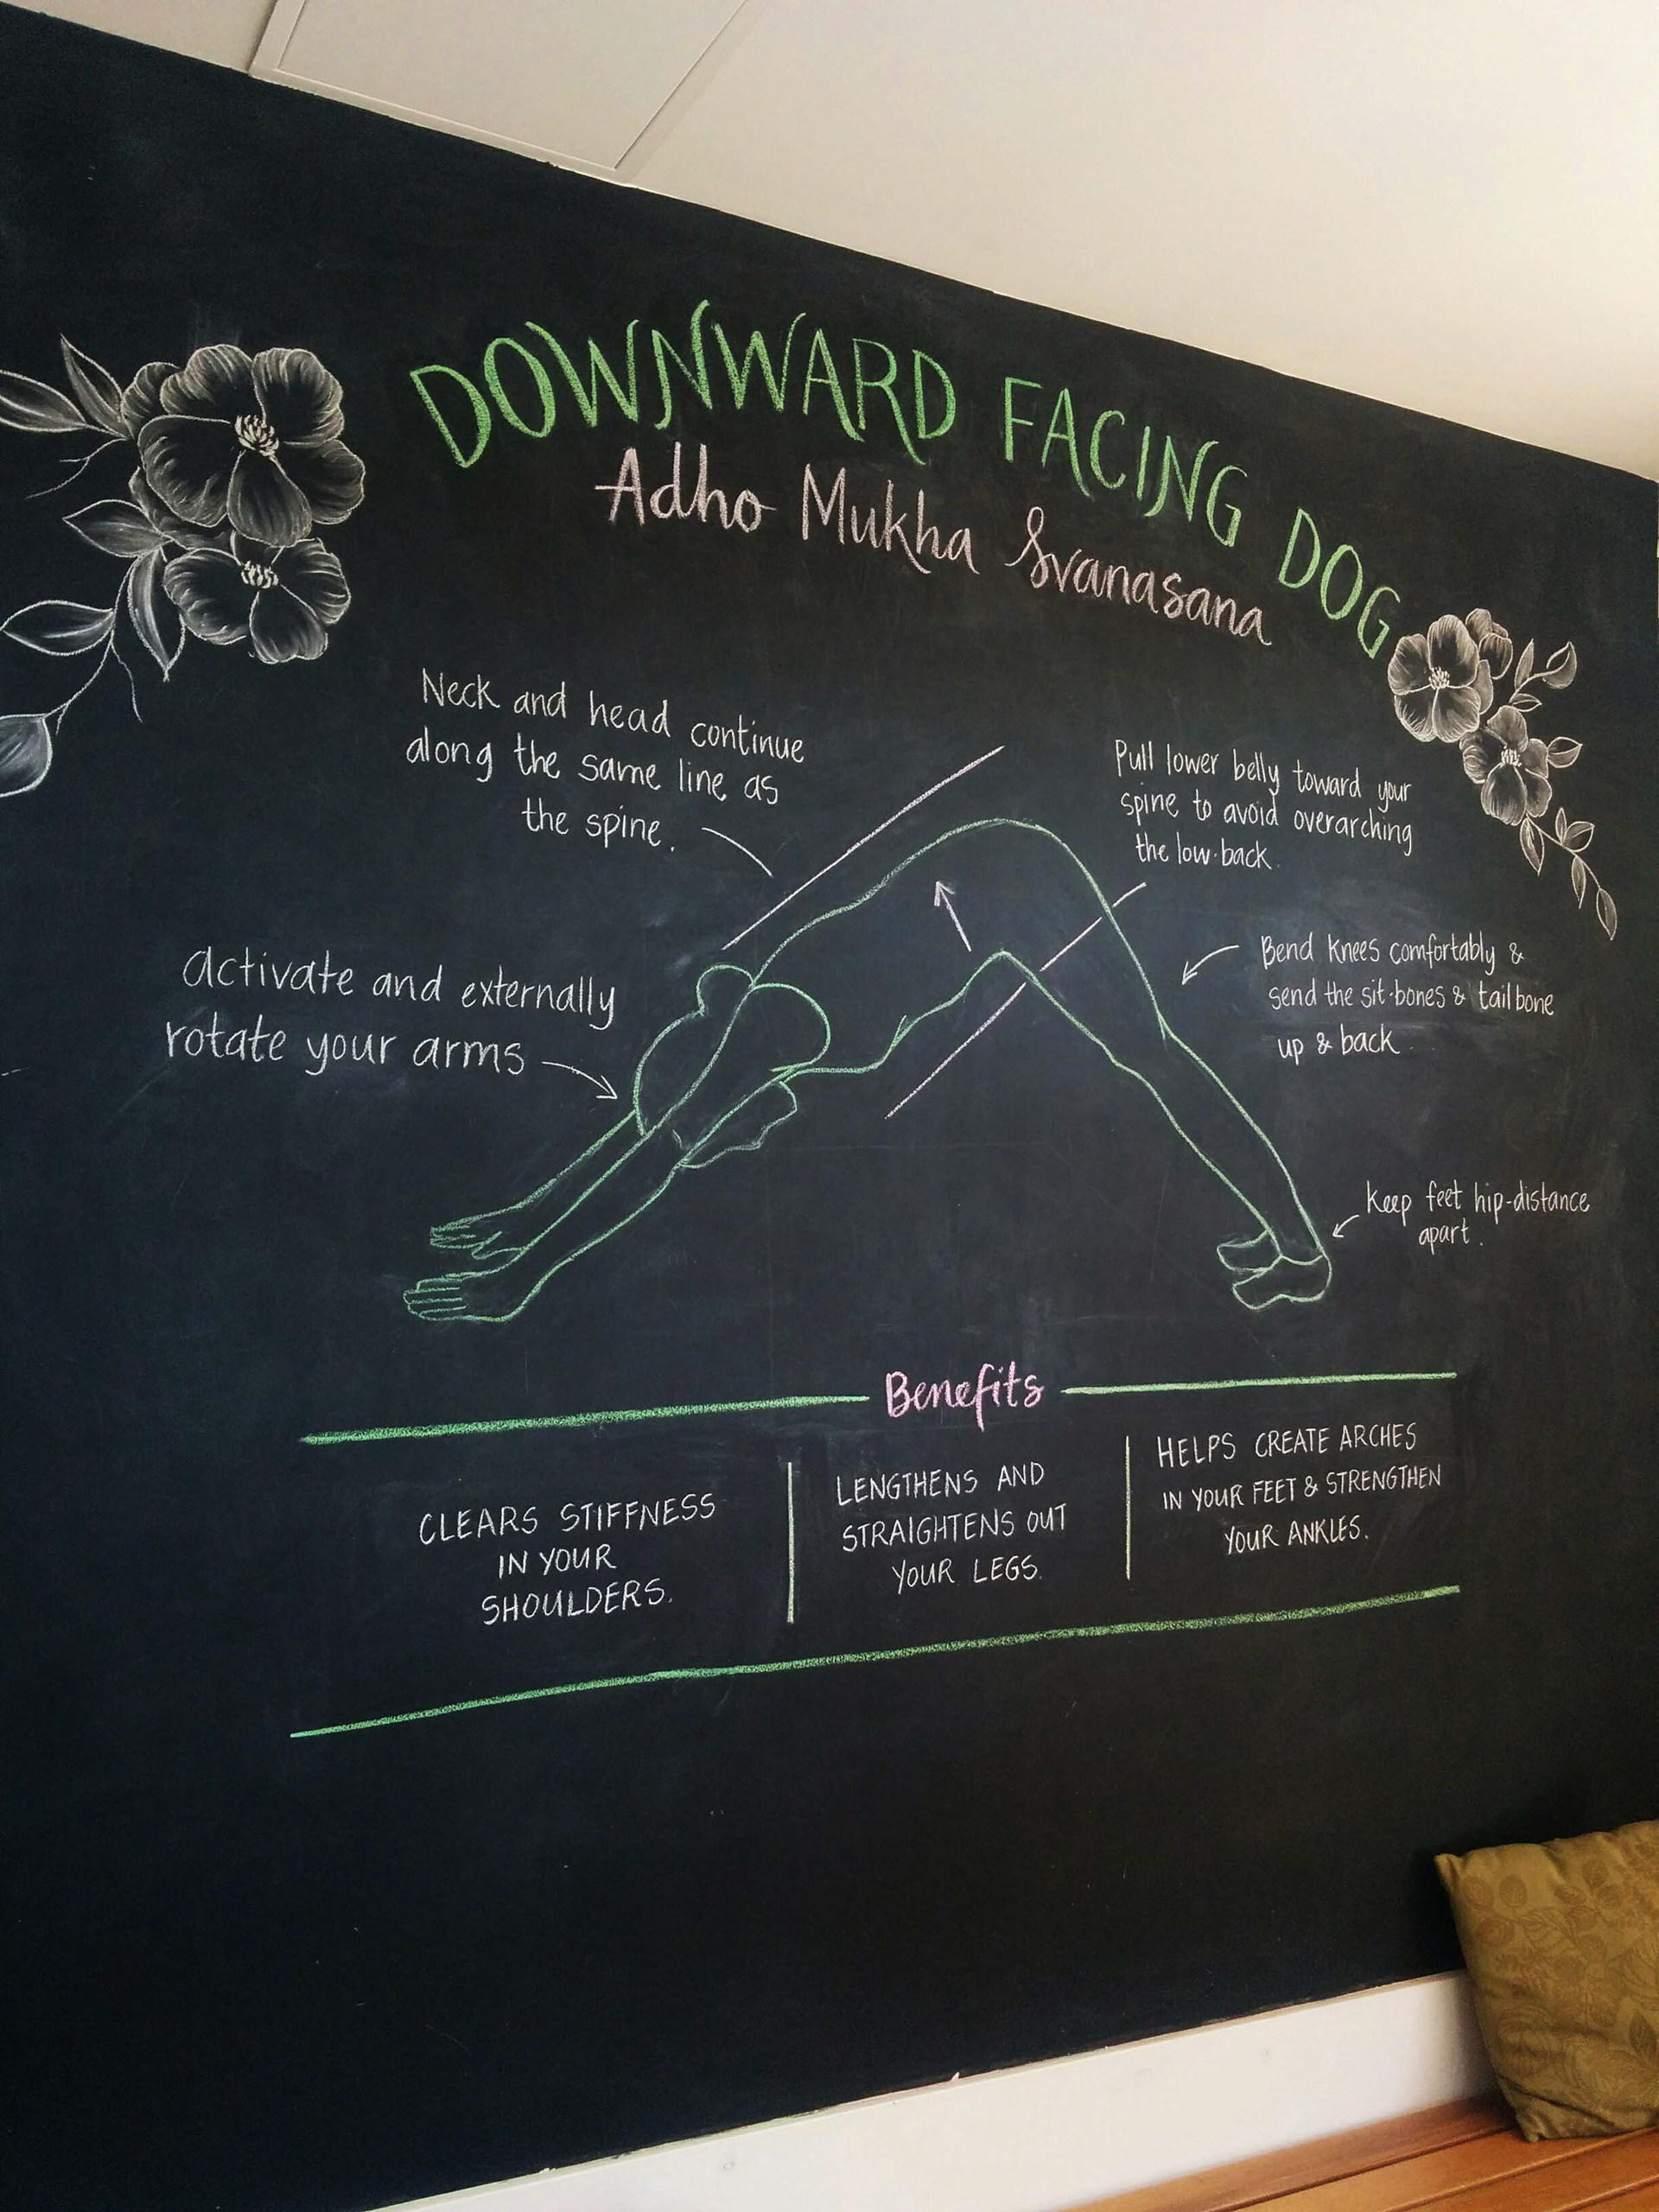 DOWNWARD FACING DOG
Adho Mukha Svanasana
Neck and head continue
along the same line as
the spine.
Pull lower belly toward your
spine to avoid overarching
the low-back.
activate and externally
rotate your arms
Bend knees comfortably &
send the sit-bones & tailbone
up & back
keep feet hip-distance
apart.
Benefits
CLEARS STIFFNESS
IN YOUR
SHOULDERS.
LENGTHENS AND
STRAIGHTENS OUT
YOUR LEGS.
HELPS CREATE ARCHES
IN YOUR FEET & STRENGTHEN
YOUR ANKLES.